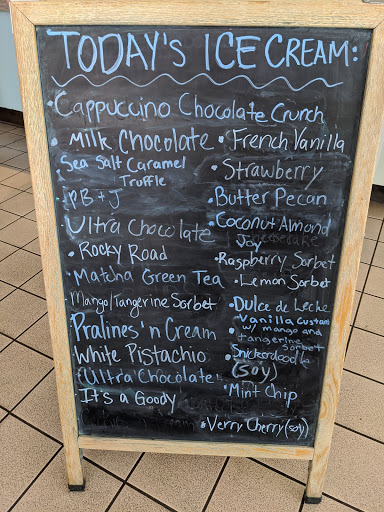 TODAY'S ICE CREAM:
Cappuccino Chocolate Crunch
Milk Chocolate
Sea Salt Caramel
Truffle
PB + J
Ultra Chocolate
Rocky Road
Matcha Green Tea
Mango/Tangerine Sorbet
Pralines 'n Cream
White Pistachio
Ultra Chocolate
It's a Goody
French Vanilla
Strawberry
Butter Pecan
Coconut Almond
Joy
Raspberry Sorbet
Lemon Sorbet
Dulce de Leche
Vanilla Custard
w/ mango and
tangerine
sorbet
Snickerdoodle
(soy)
Mint Chip
Verry Cherry (soy)